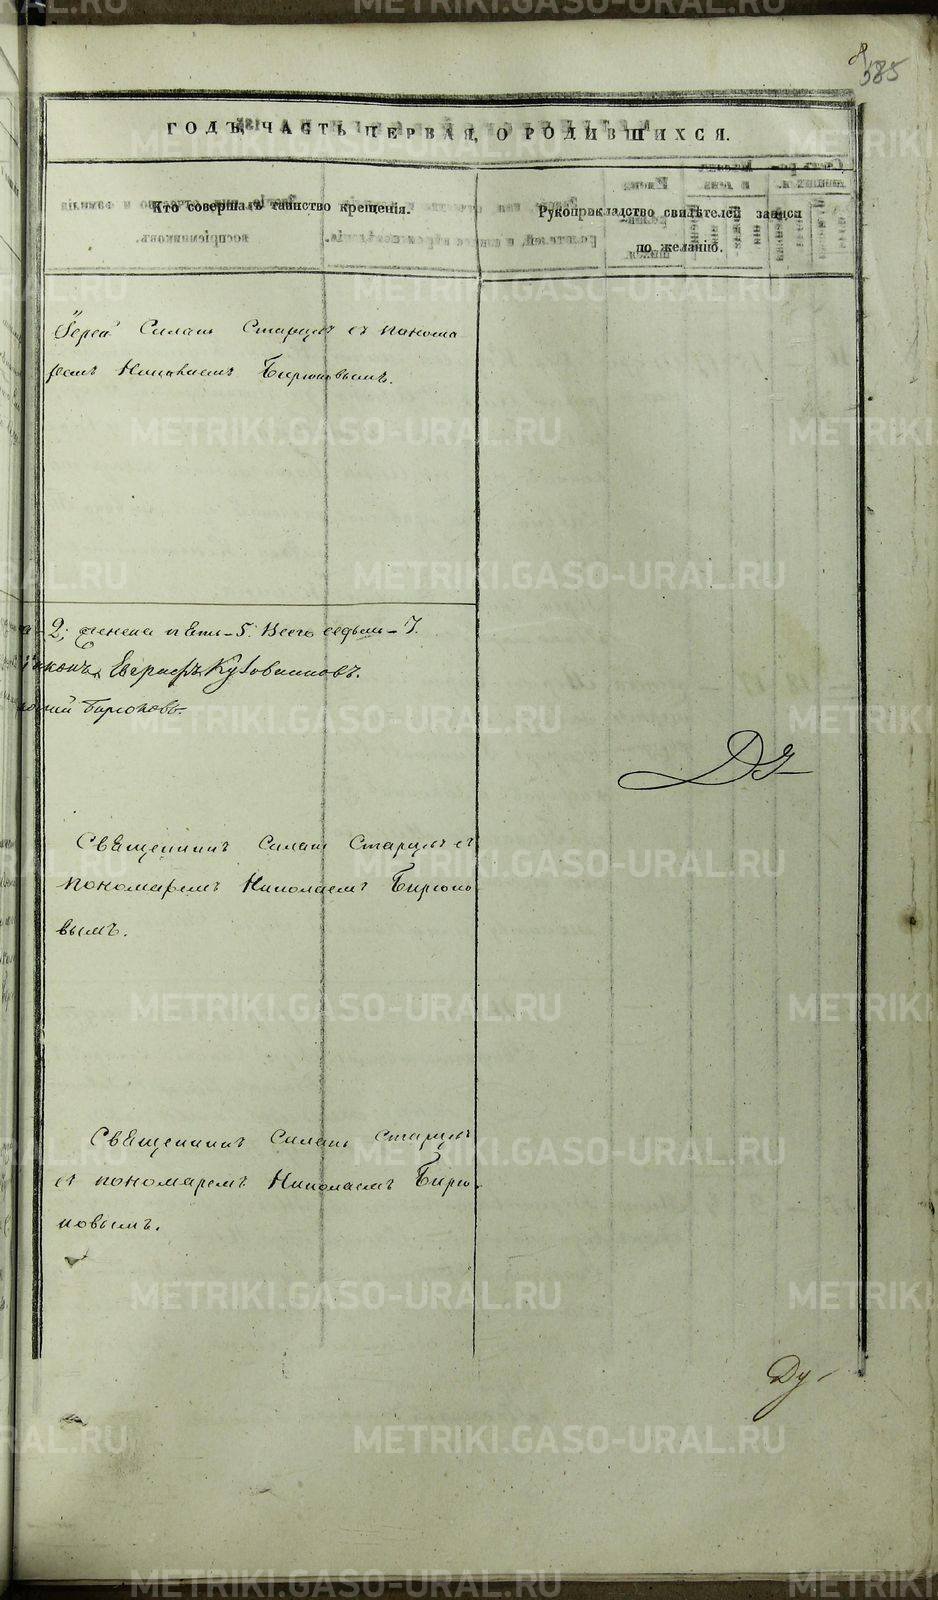 8
585
ГОДЪ, ЧАСТЬ ПЕРВАЯ, О РОДИВШИХСЯ.
Кто совершалъ таинство крещенія.
Рукоприкладство свидѣтелей записи
по желанію.
Іерей Силанъ Старцевъ съ понома
ремъ Николаемъ Бирюковымъ.
2; женска пять - 5. Всего седмь - 7.
Евграфъ Кузовниковъ.
Бирюковъ.
Священникъ Силанъ Старцевъ съ
пономаремъ Николаемъ Бирюко
вымъ.
Священникъ Силанъ Старцевъ
съ пономаремъ Николаемъ Бирю
ковымъ.
METRIKI.GASO-URAL.RU